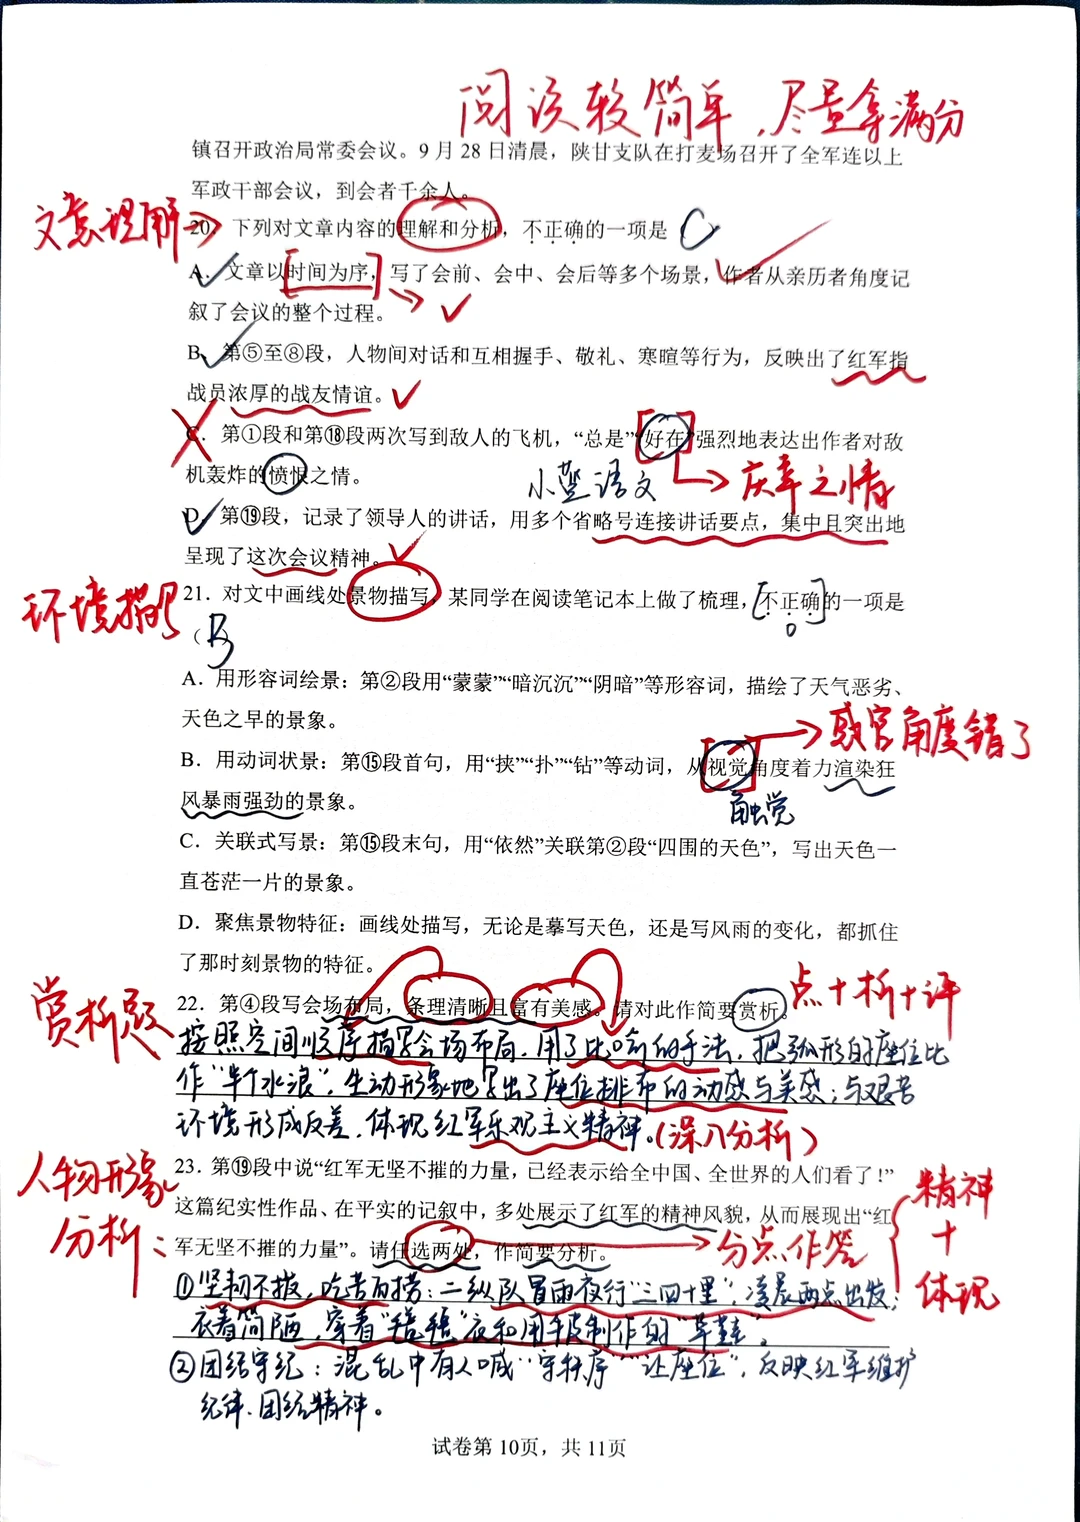 阅读较简单，尽量拿满分
镇召开政治局常委会议。9月28日清晨，陕甘支队在打麦场召开了全军连以上
军政干部会议，到会者千余人。
文意理解
20．下列对文章内容的理解和分析，不正确的一项是 C
A．文章以时间为序，写了会前、会中、会后等多个场景，作者从亲历者角度记
叙了会议的整个过程。
B．第⑤至⑧段，人物间对话和互相握手、敬礼、寒暄等行为，反映出了红军指
战员浓厚的战友情谊。
C．第①段和第⑱段两次写到敌人的飞机，“总是”“好在”强烈地表达出作者对敌
机轰炸的愤恨之情。
小蓝语文
庆幸之情
D．第⑲段，记录了领导人的讲话，用多个省略号连接讲话要点，集中且突出地
呈现了这次会议精神。
环境描写
21．对文中画线处景物描写，某同学在阅读笔记本上做了梳理，不正确的一项是
（B
A．用形容词绘景：第②段用“蒙蒙”“暗沉沉”“阴暗”等形容词，描绘了天气恶劣、
天色之早的景象。
感官角度错了
B．用动词状景：第⑮段首句，用“挟”“扑”“钻”等动词，从视觉角度着力渲染狂
风暴雨强劲的景象。
触觉
C．关联式写景：第⑮段末句，用“依然”关联第②段“四围的天色”，写出天色一
直苍茫一片的景象。
D．聚焦景物特征：画线处描写，无论是摹写天色，还是写风雨的变化，都抓住
了那时刻景物的特征。
赏析题
22．第④段写会场布局，条理清晰且富有美感。请对此作简要赏析。
点+析+评
按照空间顺序描写会场布局，用了比喻的手法，把弧形的座位比
作“半个水浪”，生动形象地写出了座位排布的动感与美感；与艰苦
环境形成反差，体现红军乐观主义精神。(深入分析)
人物形象
分析：
23．第⑲段中说“红军无坚不摧的力量，已经表示给全中国、全世界的人们看了！”
这篇纪实性作品、在平实的记叙中，多处展示了红军的精神风貌，从而展现出“红
军无坚不摧的力量”。请任选两处，作简要分析。
分点作答
精神
+
体现
①坚韧不拔，吃苦耐劳：二纵队冒雨夜行“三四十里”，凌晨两点出发；
衣着简陋，穿着“褴褛”衣和用牛皮制作的“草鞋”。
②团结守纪：混乱中有人喊“守秩序”“让座位”，反映红军维护
纪律、团结精神。
试卷第10页，共11页